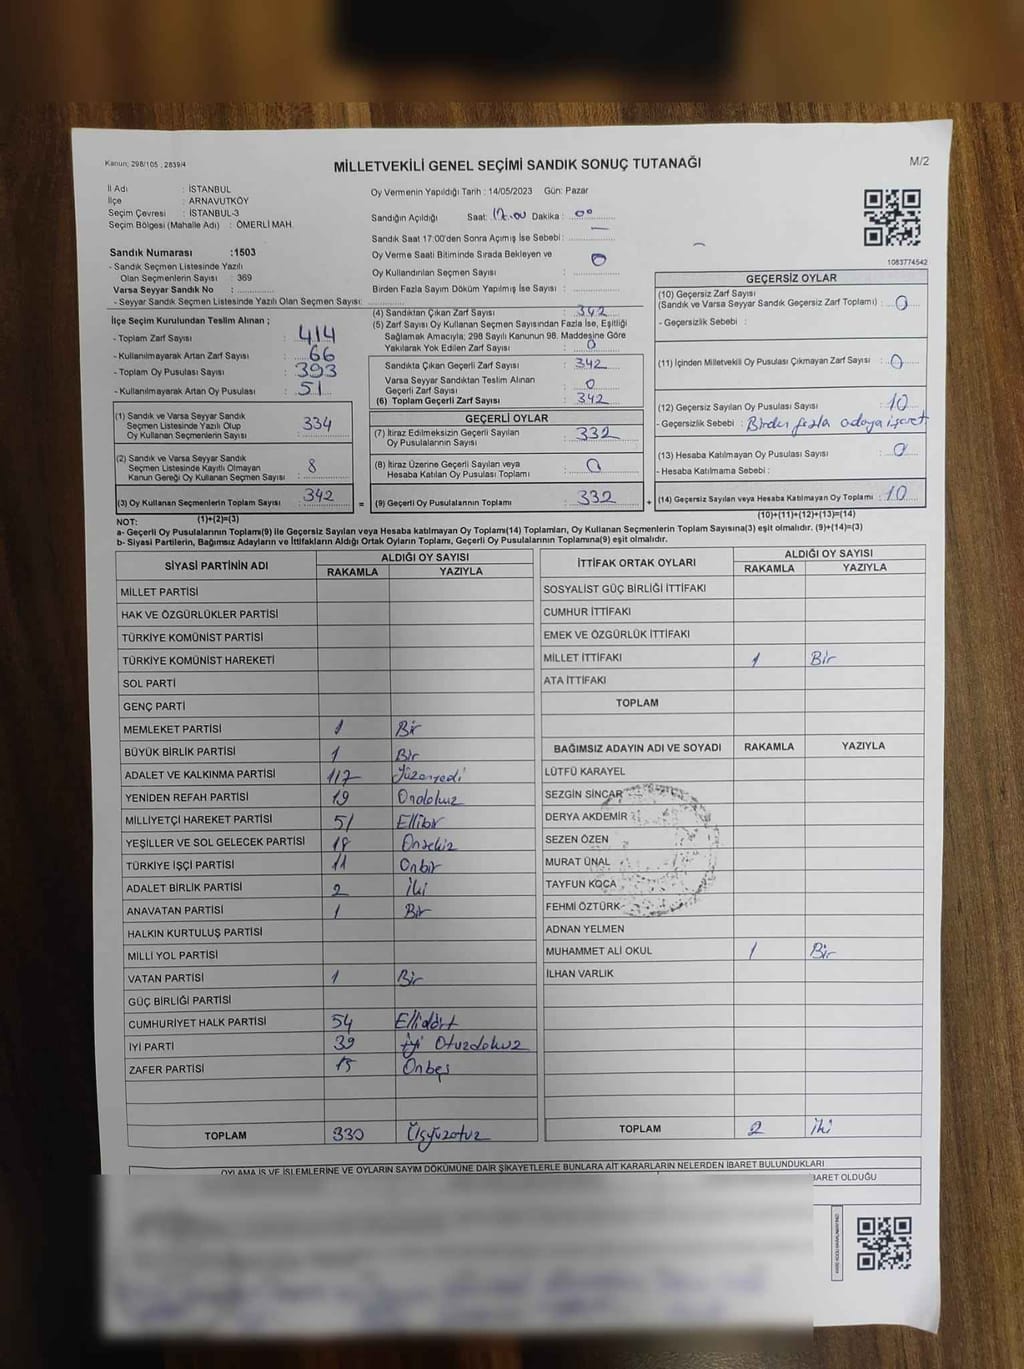 Kanun; 298/105 , 2839/4
MİLLETVEKİLİ GENEL SEÇİMİ SANDIK SONUÇ TUTANAĞI
M/2
İl Adı : İSTANBUL
İlçe : ARNAVUTKÖY
Seçim Çevresi : İSTANBUL-3
Seçim Bölgesi (Mahalle Adı) : ÖMERLİ MAH.
Sandık Numarası :1503
- Sandık Seçmen Listesinde Yazılı
Olan Seçmenlerin Sayısı : 369
Varsa Seyyar Sandık No :
- Seyyar Sandık Seçmen Listesinde Yazılı Olan Seçmen Sayısı:
Oy Vermenin Yapıldığı Tarih : 14/05/2023 Gün: Pazar
Sandığın Açıldığı Saat: 17.00 Dakika : 00
Sandık Saat 17:00'den Sonra Açımış İse Sebebi: —
Oy Verme Saati Bitiminde Sırada Bekleyen ve : 0
Oy Kullandırılan Seçmen Sayısı :
Birden Fazla Sayım Döküm Yapılmış İse Sayısı :
1083774542
İlçe Seçim Kurulundan Teslim Alınan ;
- Toplam Zarf Sayısı : 414
- Kullanılmayarak Artan Zarf Sayısı : 66
- Toplam Oy Pusulası Sayısı : 393
- Kullanılmayarak Artan Oy Pusulası : 51
(1) Sandık ve Varsa Seyyar Sandık
Seçmen Listesinde Yazılı Olup
Oy Kullanan Seçmenlerin Sayısı : 334
(2) Sandık ve Varsa Seyyar Sandık
Seçmen Listesinde Kayıtlı Olmayan
Kanun Gereği Oy Kullanan Seçmen Sayısı : 8
(3) Oy Kullanan Seçmenlerin Toplam Sayısı : 342
(1)+(2)=(3)
(4) Sandıktan Çıkan Zarf Sayısı : 342
(5) Zarf Sayısı Oy Kullanan Seçmen Sayısından Fazla İse, Eşitliği
Sağlamak Amacıyla; 298 Sayılı Kanunun 98. Maddesine Göre
Yakılarak Yok Edilen Zarf Sayısı : 0
Sandıkta Çıkan Geçerli Zarf Sayısı : 342
Varsa Seyyar Sandıktan Teslim Alınan
Geçerli Zarf Sayısı : 0
(6) Toplam Geçerli Zarf Sayısı : 342
GEÇERLİ OYLAR
(7) İtiraz Edilmeksizin Geçerli Sayılan
Oy Pusulalarının Sayısı : 332
(8) İtiraz Üzerine Geçerli Sayılan veya
Hesaba Katılan Oy Pusulası Toplamı : 0
= (9) Geçerli Oy Pusulalarının Toplamı : 332
GEÇERSİZ OYLAR
(10) Geçersiz Zarf Sayısı
(Sandık ve Varsa Seyyar Sandık Geçersiz Zarf Toplamı) : 0
- Geçersizlik Sebebi :
(11) İçinden Milletvekili Oy Pusulası Çıkmayan Zarf Sayısı : 0
(12) Geçersiz Sayılan Oy Pusulası Sayısı : 10
- Geçersizlik Sebebi : Birden fazla adaya işaret
(13) Hesaba Katılmayan Oy Pusulası Sayısı : 0
- Hesaba Katılmama Sebebi :
+ (14) Geçersiz Sayılan veya Hesaba Katılmayan Oy Toplamı : 10
(10)+(11)+(12)+(13)=(14)
NOT:
a- Geçerli Oy Pusulalarının Toplamı(9) ile Geçersiz Sayılan veya Hesaba katılmayan Oy Toplam(14) Toplamları, Oy Kullanan Seçmenlerin Toplam Sayısına(3) eşit olmalıdır. (9)+(14)=(3)
b- Siyasi Partilerin, Bağımsız Adayların ve İttifakların Aldığı Ortak Oyların Toplamı, Geçerli Oy Pusulalarının Toplamına(9) eşit olmalıdır.
SİYASİ PARTİNİN ADI ALDIĞI OY SAYISI
RAKAMLA YAZIYLA
MİLLET PARTİSİ
HAK VE ÖZGÜRLÜKLER PARTİSİ
TÜRKİYE KOMÜNİST PARTİSİ
TÜRKİYE KOMÜNİST HAREKETİ
SOL PARTİ
GENÇ PARTİ
MEMLEKET PARTİSİ 1 Bir
BÜYÜK BİRLİK PARTİSİ 1 Bir
ADALET VE KALKINMA PARTİSİ 117 Yüzonyedi
YENİDEN REFAH PARTİSİ 19 Ondokuz
MİLLİYETÇİ HAREKET PARTİSİ 51 Ellibir
YEŞİLLER VE SOL GELECEK PARTİSİ 18 Onsekiz
TÜRKİYE İŞÇİ PARTİSİ 11 Onbir
ADALET BİRLİK PARTİSİ 2 İki
ANAVATAN PARTİSİ 1 Bir
HALKIN KURTULUŞ PARTİSİ
MİLLİ YOL PARTİSİ
VATAN PARTİSİ 1 Bir
GÜÇ BİRLİĞİ PARTİSİ
CUMHURİYET HALK PARTİSİ 54 Ellidört
İYİ PARTİ 39 iyi Otuzdokuz
ZAFER PARTİSİ 15 Onbeş
TOPLAM 330 Üçyüzotuz
İTTİFAK ORTAK OYLARI ALDIĞI OY SAYISI
RAKAMLA YAZIYLA
SOSYALİST GÜÇ BİRLİĞİ İTTİFAKI
CUMHUR İTTİFAKI
EMEK VE ÖZGÜRLÜK İTTİFAKI
MİLLET İTTİFAKI 1 Bir
ATA İTTİFAKI
TOPLAM
BAĞIMSIZ ADAYIN ADI VE SOYADI RAKAMLA YAZIYLA
LÜTFÜ KARAYEL
SEZGİN SİNCAR
DERYA AKDEMİR
SEZEN ÖZEN
MURAT ÜNAL
TAYFUN KOÇA
FEHMİ ÖZTÜRK
ADNAN YELMEN
MUHAMMET ALİ OKUL 1 Bir
İLHAN VARLIK
TOPLAM 2 İki
OYLAMA İŞ VE İŞLEMLERİNE VE OYLARIN SAYIM DÖKÜMÜNE DAİR ŞİKAYETLERLE BUNLARA AİT KARARLARIN NELERDEN İBARET BULUNDUKLARI
BARET OLDUĞU